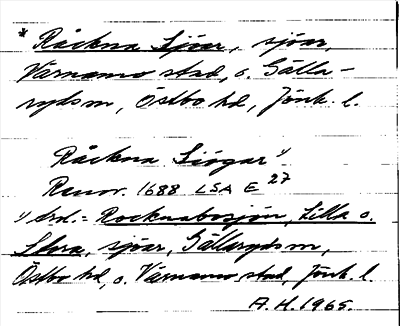 * Råckna Sjöar, sjöar,
Värnamo stad, o. Gälla-
ryds sn, Östbo hd, Jönk. l.
Råckna Siögar 1)
Renov. 1688 LSA E 27
1) Srd.: Rocknabosjön, Lilla o.
Stora, sjöar, Gällaryds sn,
Östbo hd, o. Värnamo stad, Jönk. l.
A.H. 1965.